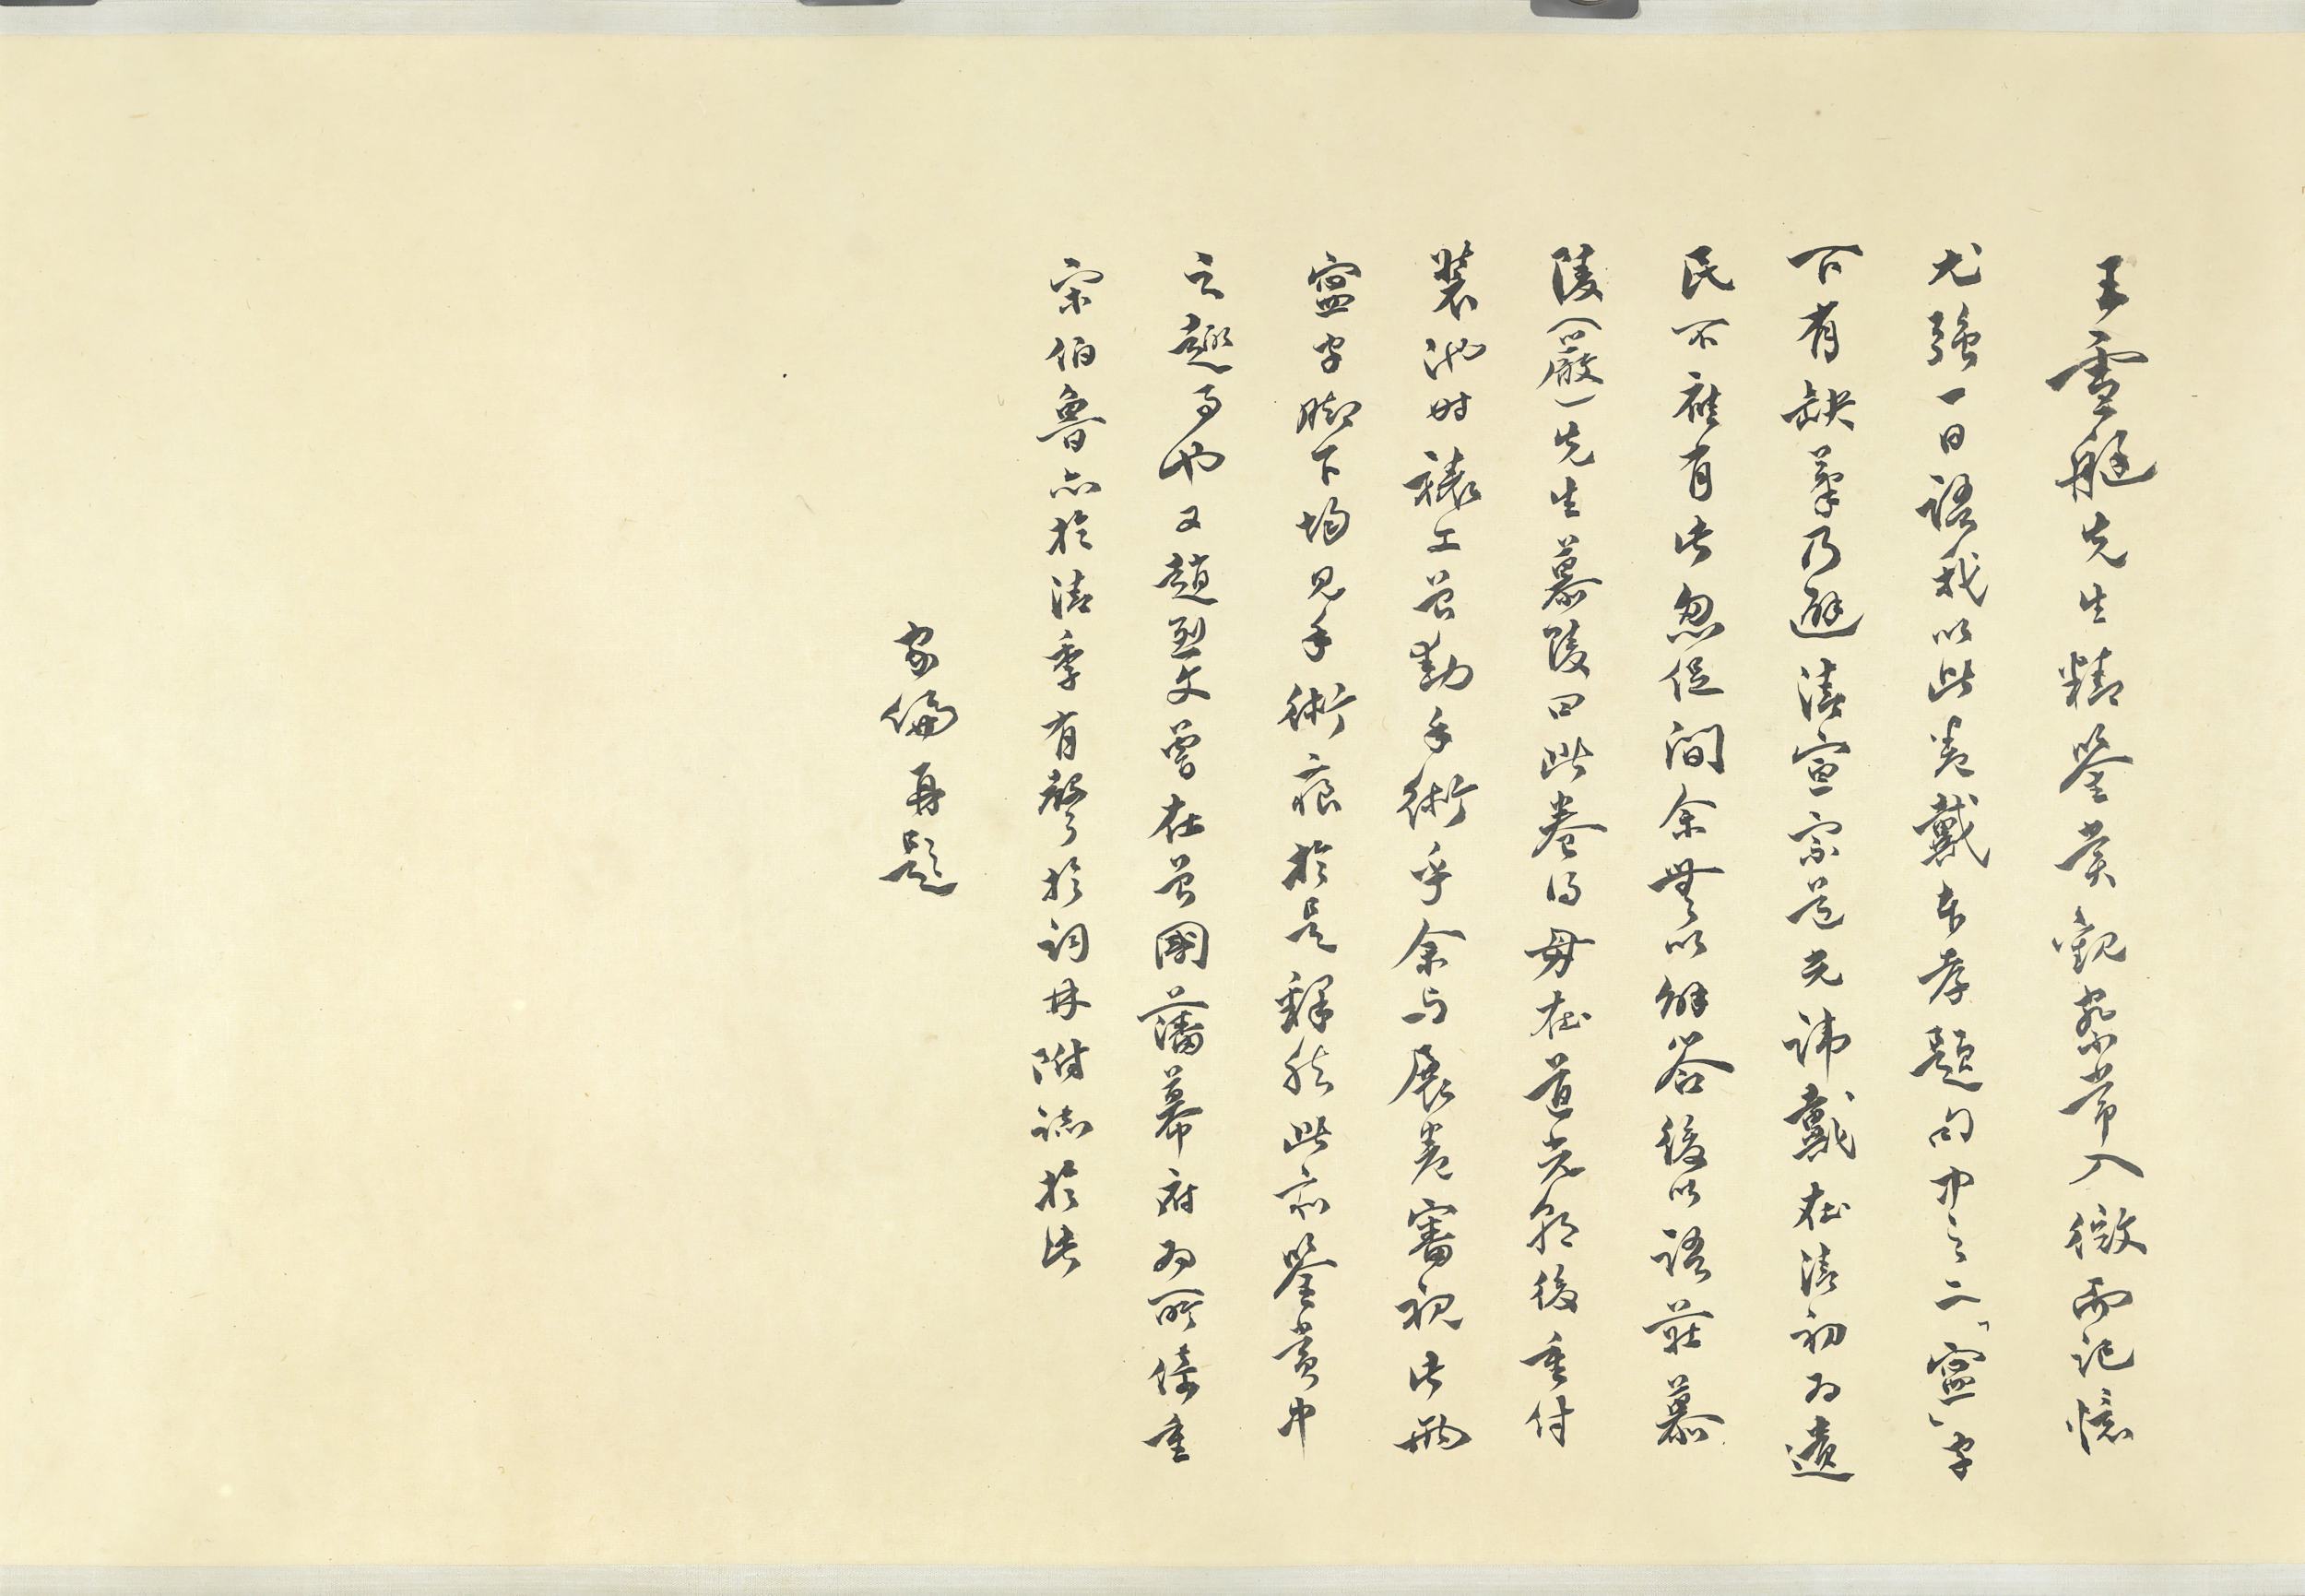 王雪艇先生精鑒賞觀察常入微而記憶
尤強一日語我以此卷戴本孝題句中之二「寍」字
下有缺筆乃避清宣宗道光諱戴在清初為遺
民不應有此忽促間余無以解答後以語莊慕
陵（嚴）先生慕陵曰此卷得毋在道光朝後重付
裝池時裱工曾動手術乎余與展卷審視此兩
寍字腳下均見手術痕於是釋然此亦鑒賞中
之趣事也又趙烈文曾在曾國藩幕府為所倚重
宋伯魯亦於清季有聲於詞林附誌於此
家倫再題